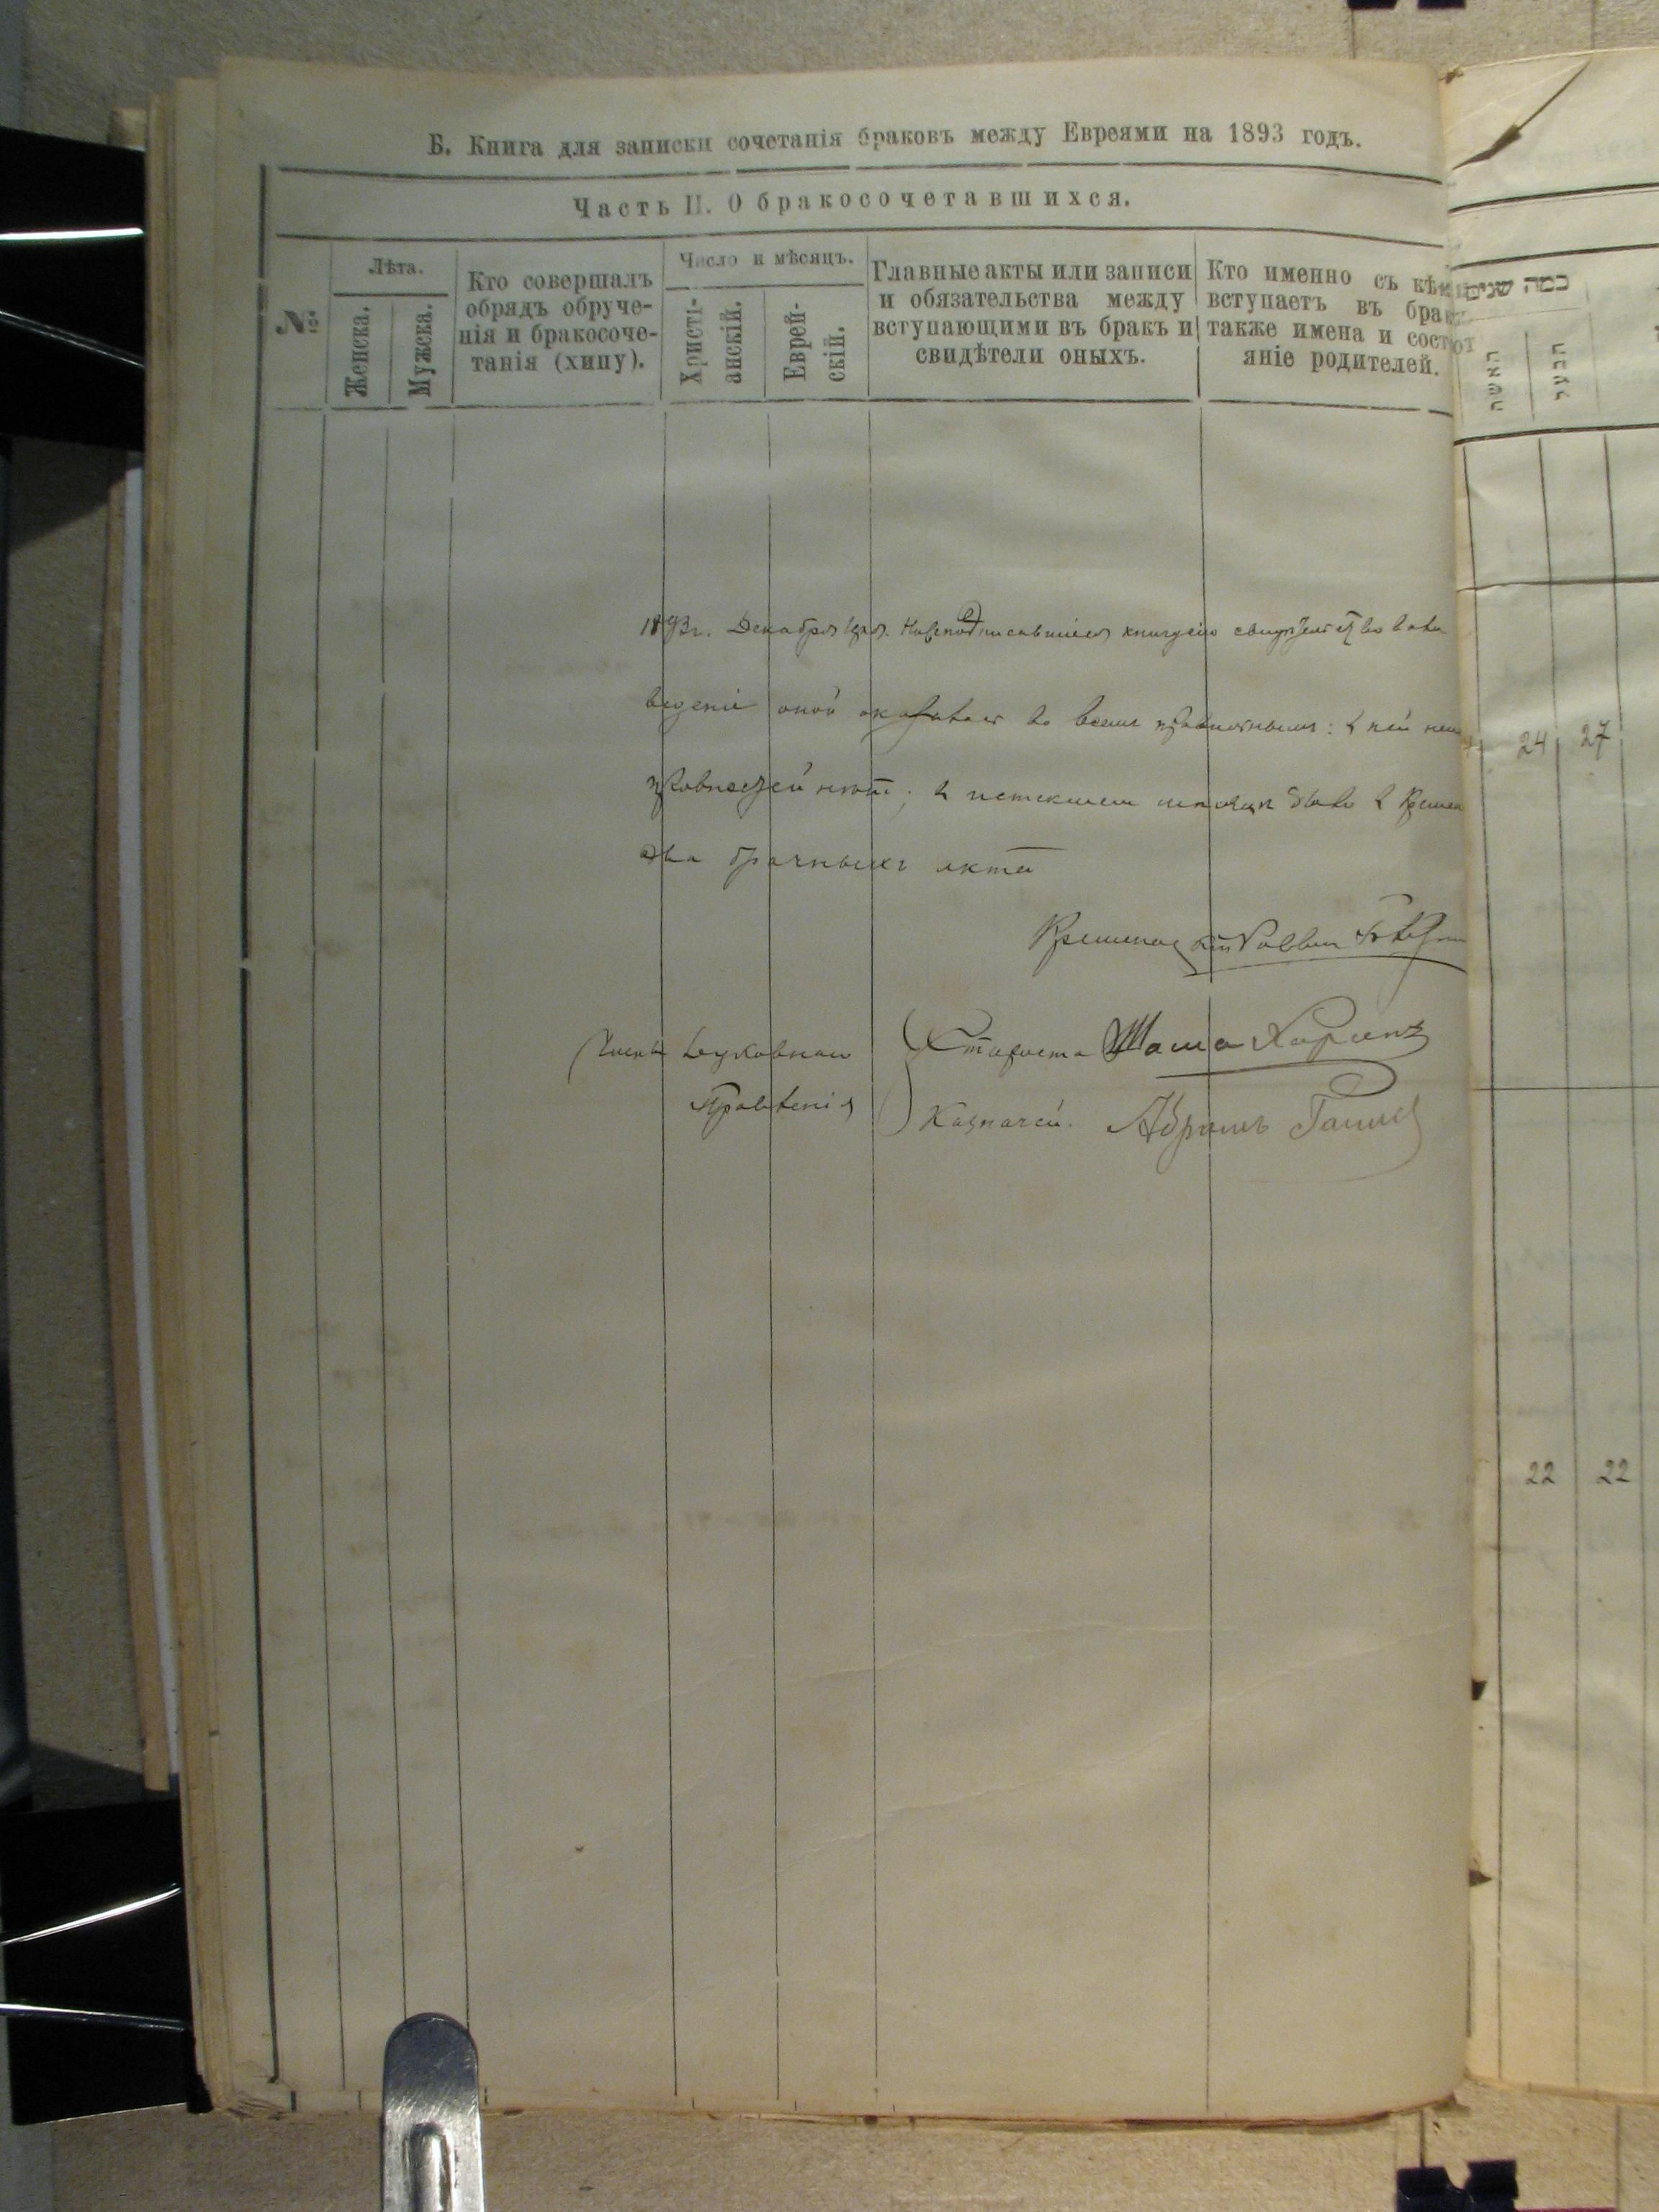 Б. Книга для записки сочетанія браковъ между Евреями на 1893 годъ.
Часть II. О бракосочетавшихся.
№
Лѣта.
Женска.
Мужска.
Кто совершалъ
обрядъ обруче-
нія и бракосоче-
танія (хипу).
Число и мѣсяцъ.
Христі-
анскій.
Еврей-
скій.
Главные акты или записи
и обязательства между
вступающими въ бракъ и
свидѣтели оныхъ.
Кто именно съ кѣмъ
вступаетъ въ бракъ
также имена и состо
яніе родителей.
1893г. Декабря 1 дня. Нижеподписавшіеся книгу сію свидѣтельствовали
веденіе оной оказалось во всемъ правильнымъ: в ней
нѣтъ; в истекшем мѣсяцѣ было в Кременч
два брачныхъ акта
Раввин
Члены Духовнаго
Правленія
Староста
Казначей. Абрамъ
כמה שנים
האשה
הבעל
24 27
22 22